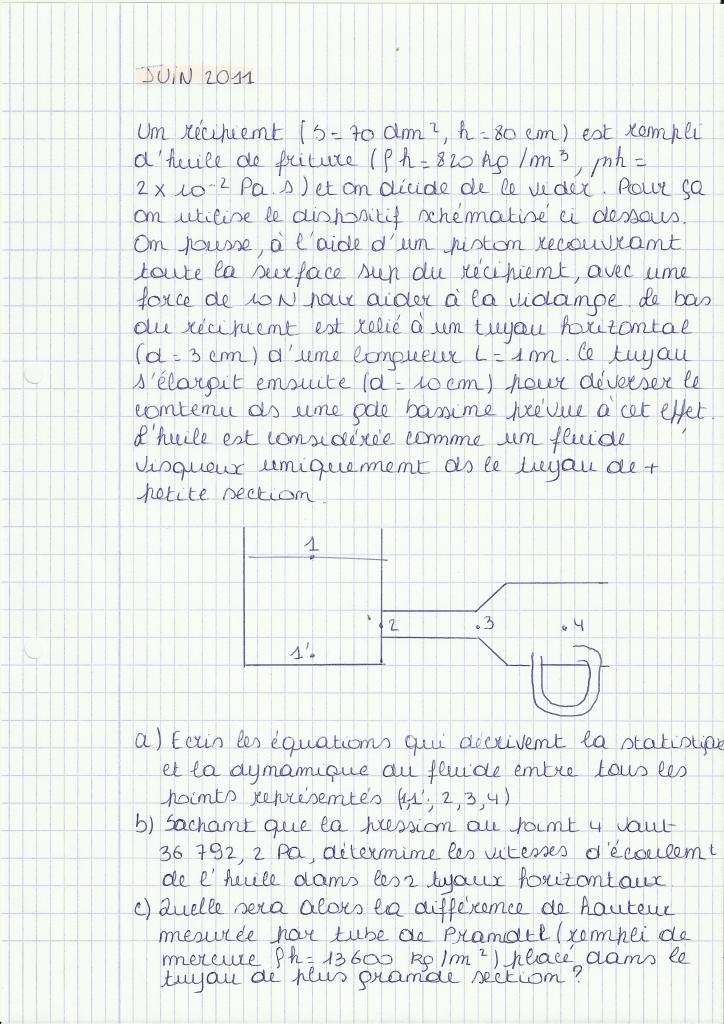 JUIN 2011
Un récipient (S = 70 dm², h = 80 cm) est rempli
d'huile de friture (ρh = 820 kg/m³, μh =
2 x 10⁻² Pa.s) et on décide de le vider. Pour ça
on utilise le dispositif schématisé ci dessous.
On pousse, à l'aide d'un piston recouvrant
toute la surface sup du récipient, avec une
force de 10N pour aider à la vidange. Le bas
du récipient est relié à un tuyau horizontal
(d = 3 cm) d'une longueur L = 1m. Ce tuyau
s'élargit ensuite (d = 10cm) pour déverser le
contenu ds une gde bassine prévue à cet effet.
L'huile est considérée comme un fluide
visqueux uniquement ds le tuyau de +
petite section.
1
2
3
4
1'
a) Ecris les équations qui décrivent la statistique
et la dynamique du fluide entre tous les
points représentés (1,1', 2, 3, 4)
b) Sachant que la pression au point 4 vaut
36 792, 2 Pa, détermine les vitesses d'écoulemt
de l'huile dans les 2 tyaux horizontaux.
c) Quelle sera alors la différence de hauteur
mesurée par tube de Prandtl (rempli de
mercure ρh = 13600 kg/m²) placé dans le
tuyau de plus grande section ?